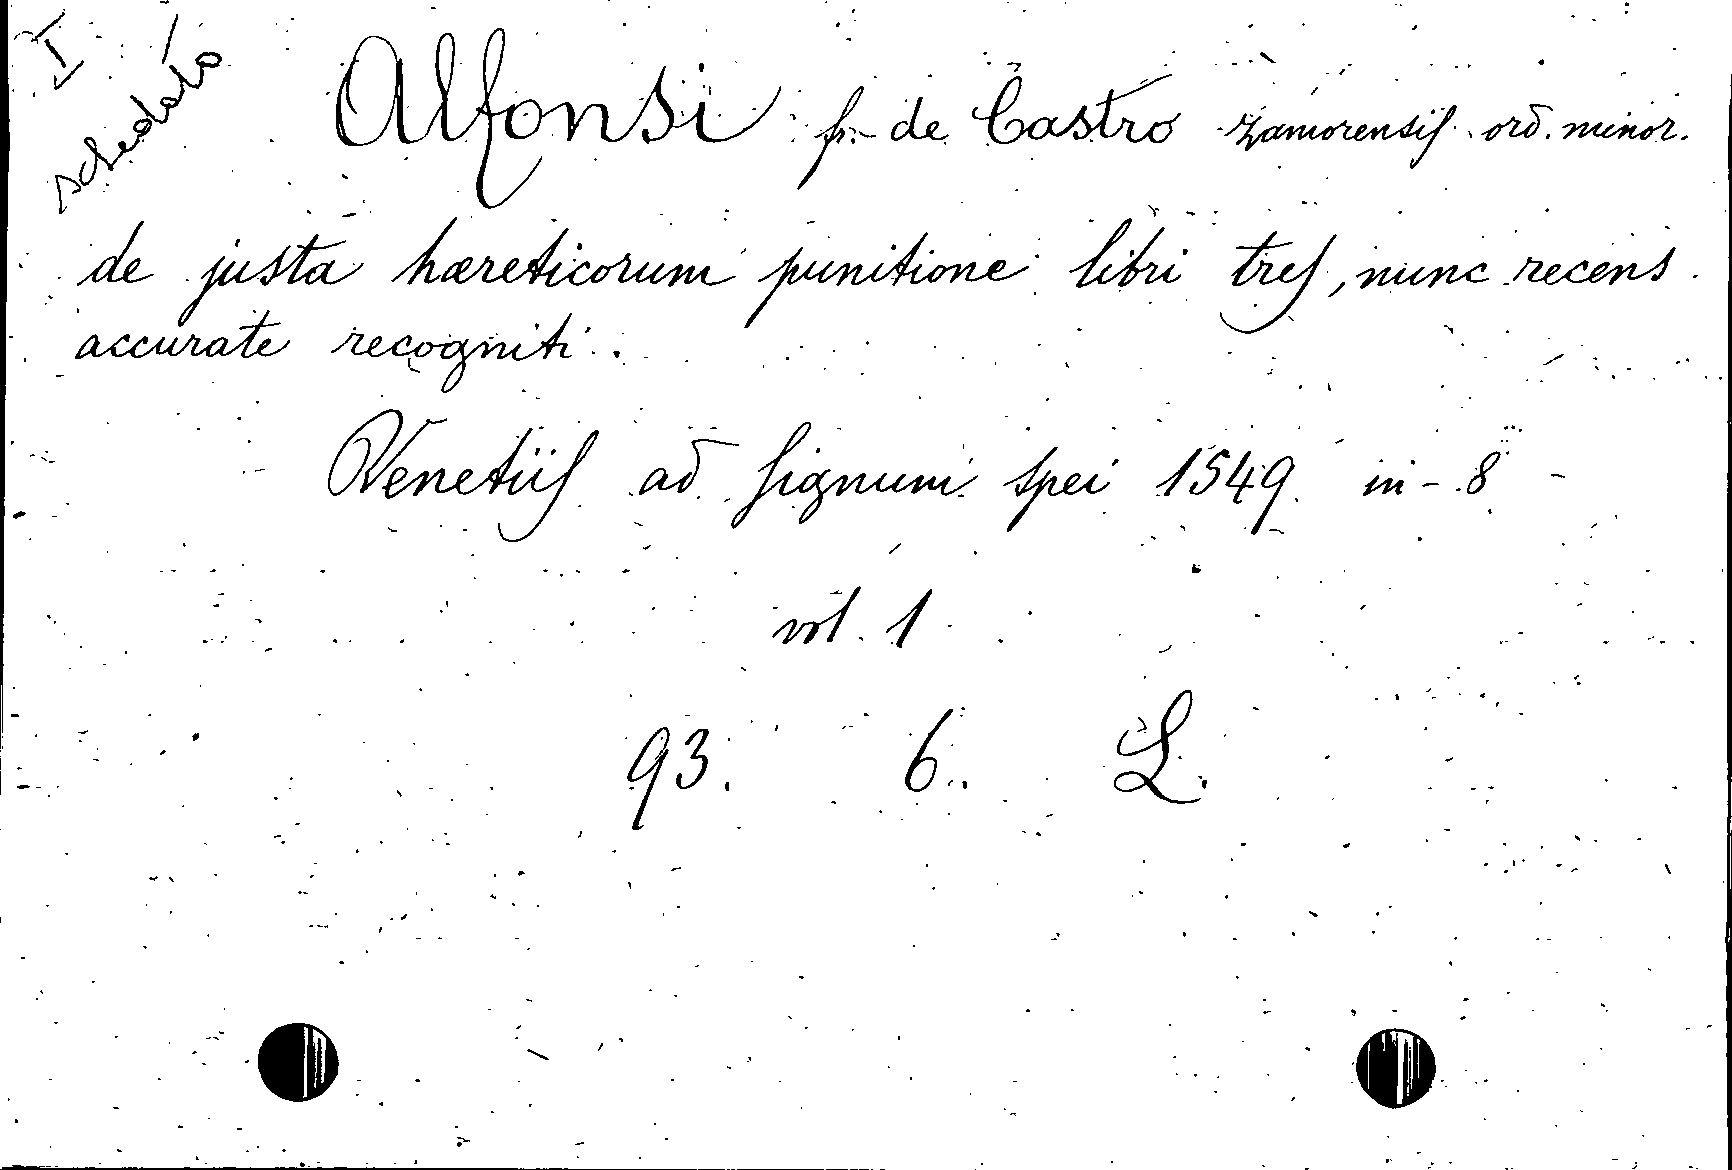 I
schedato
Alfonsi fr. de Castro zamorensis ord. minor.
de justa hæreticorum punitione libri tres, nunc recens
accurate recogniti.
Venetiis ad signum spei 1549 in-8
vol. 1
93. 6. L.